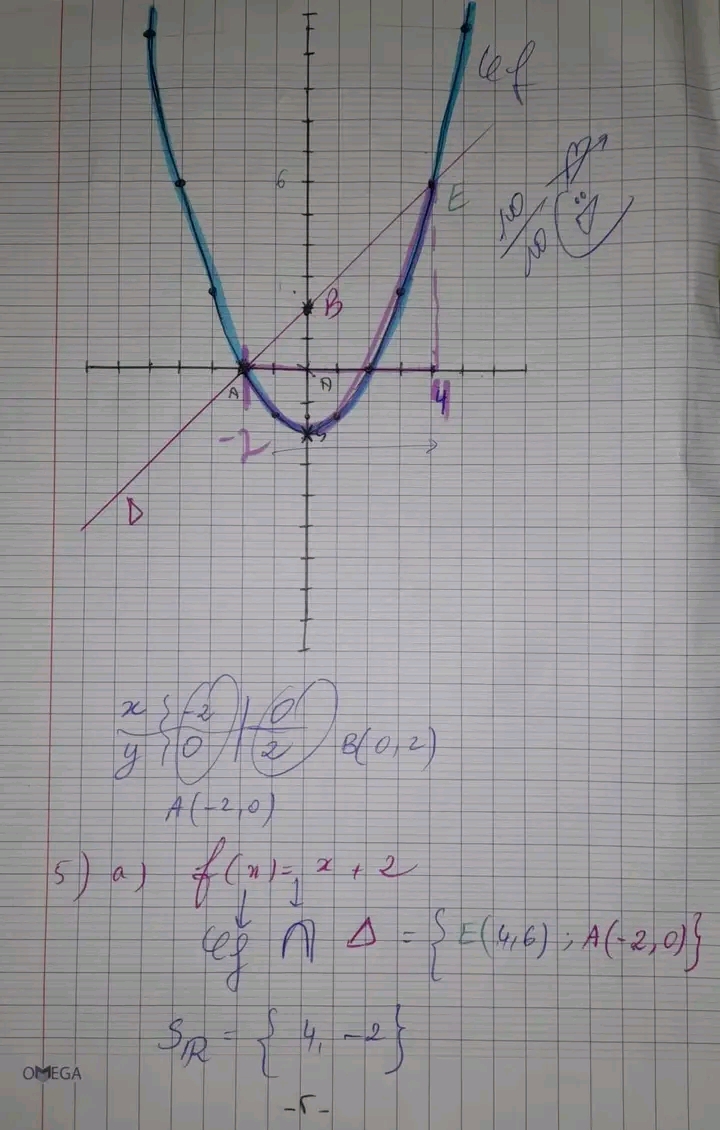 𝒞f
6
E
10/10
B
A
-2
4
S
Δ
x | -2 | 0
y | 0 | 2
B(0,2)
A(-2,0)
5) a) f(x) = x + 2
𝒞f ∩ Δ = {E(4,6) ; A(-2,0)}
Sℝ = { 4, -2 }
OMEGA
-5-